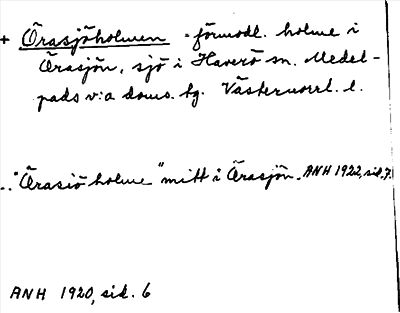 + Örasjöholmen - förmodl. holme i
Örasjön, sjö i Haverö sn. Medel-
pads v:a doms. tg. Västernorrl. l.
.. "Örasiö holme" mitt i Örasjön. ANH 1922, sid. 7.
ANH 1920, sid. 6